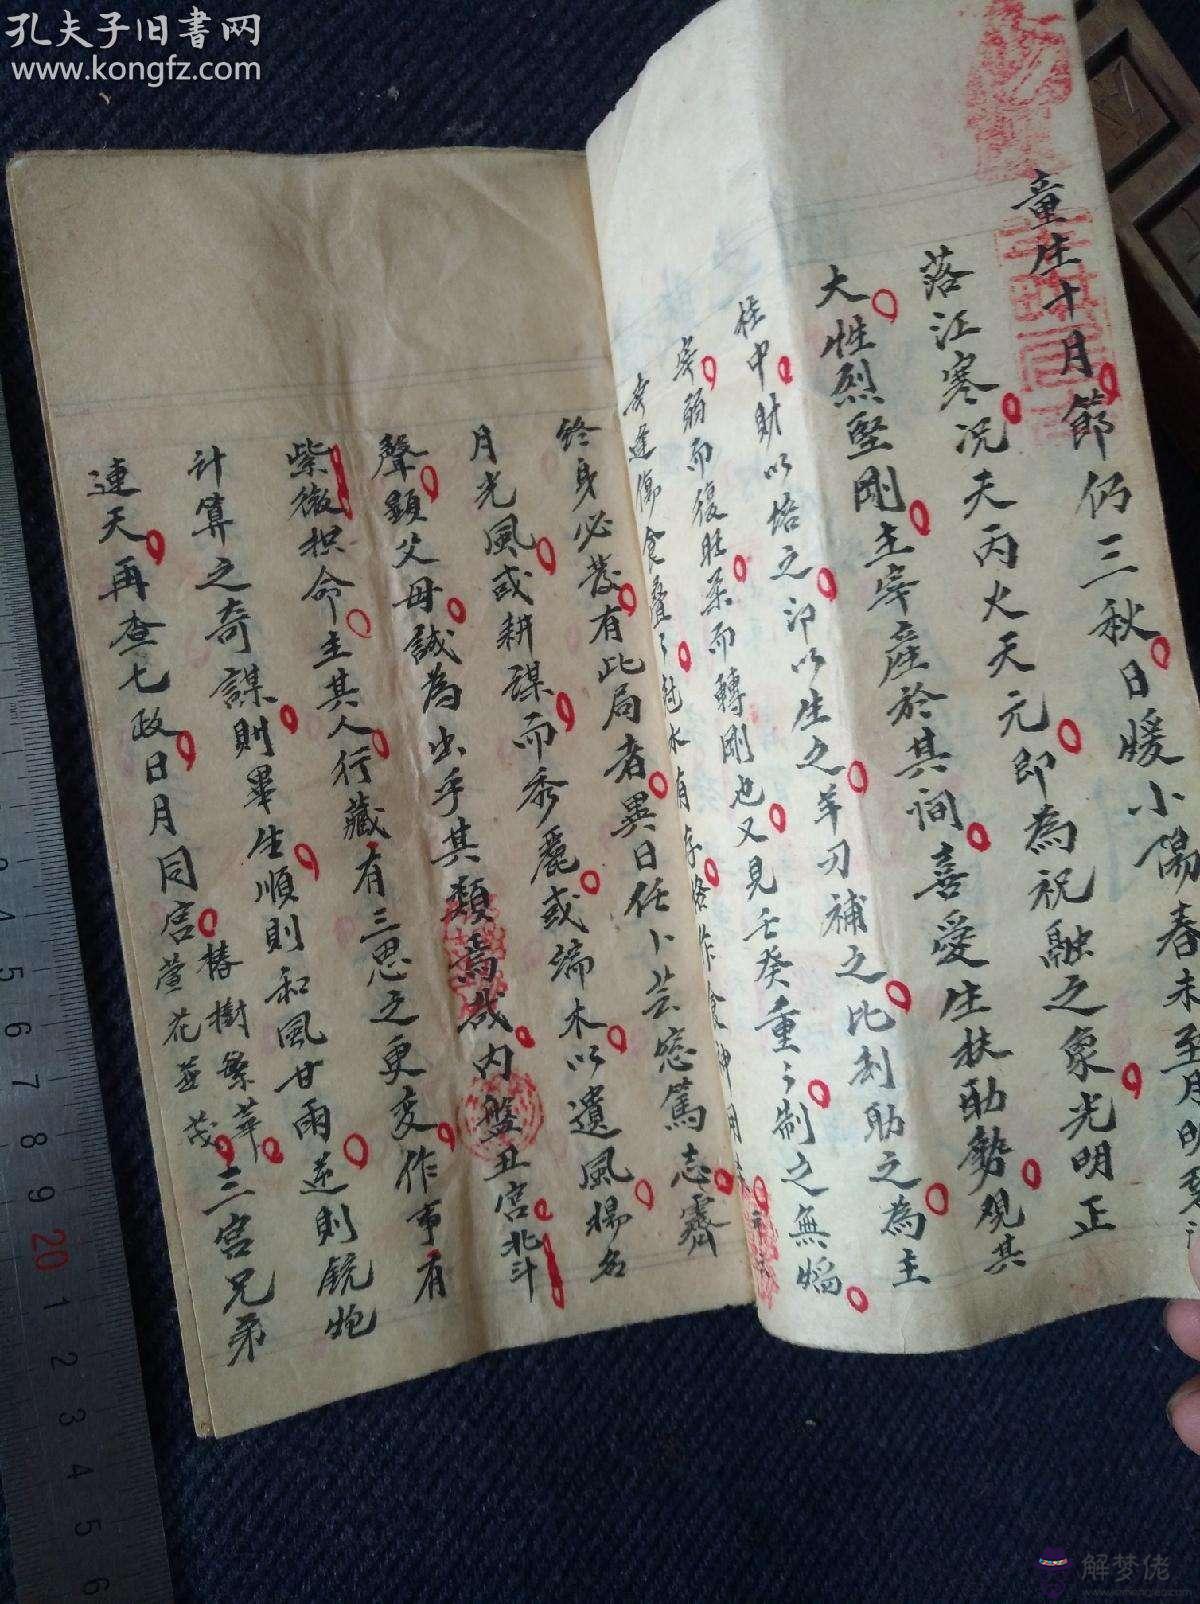 孔夫子旧書网
www.kongfz.com
童生十月節仍三秋日暖小陽春未至月明
落江寒况天丙火天元即為祝融之象光明正
大性烈堅剛主宰座於其间喜受生扶助勢观其
柱中財以培之印以生之羊刃補之比刦助之為主
宰弱而復旺柔而轉剛也又見壬癸重々制之無妨
傷食疊々
終身必發有此局者異日任卜芸窓篤志霽
月光風或耕謀而秀麗或端木以遺風揚名
聲顕父母誠為出乎其類焉哉内盤丑宮北斗
紫微担命主其人行藏有三思之更变作事有
計算之奇謀則畢生順則和風甘雨逆則銃炮
連天再查七政日月同宮椿樹繁華萱花並茂三宮兄弟
解梦佬